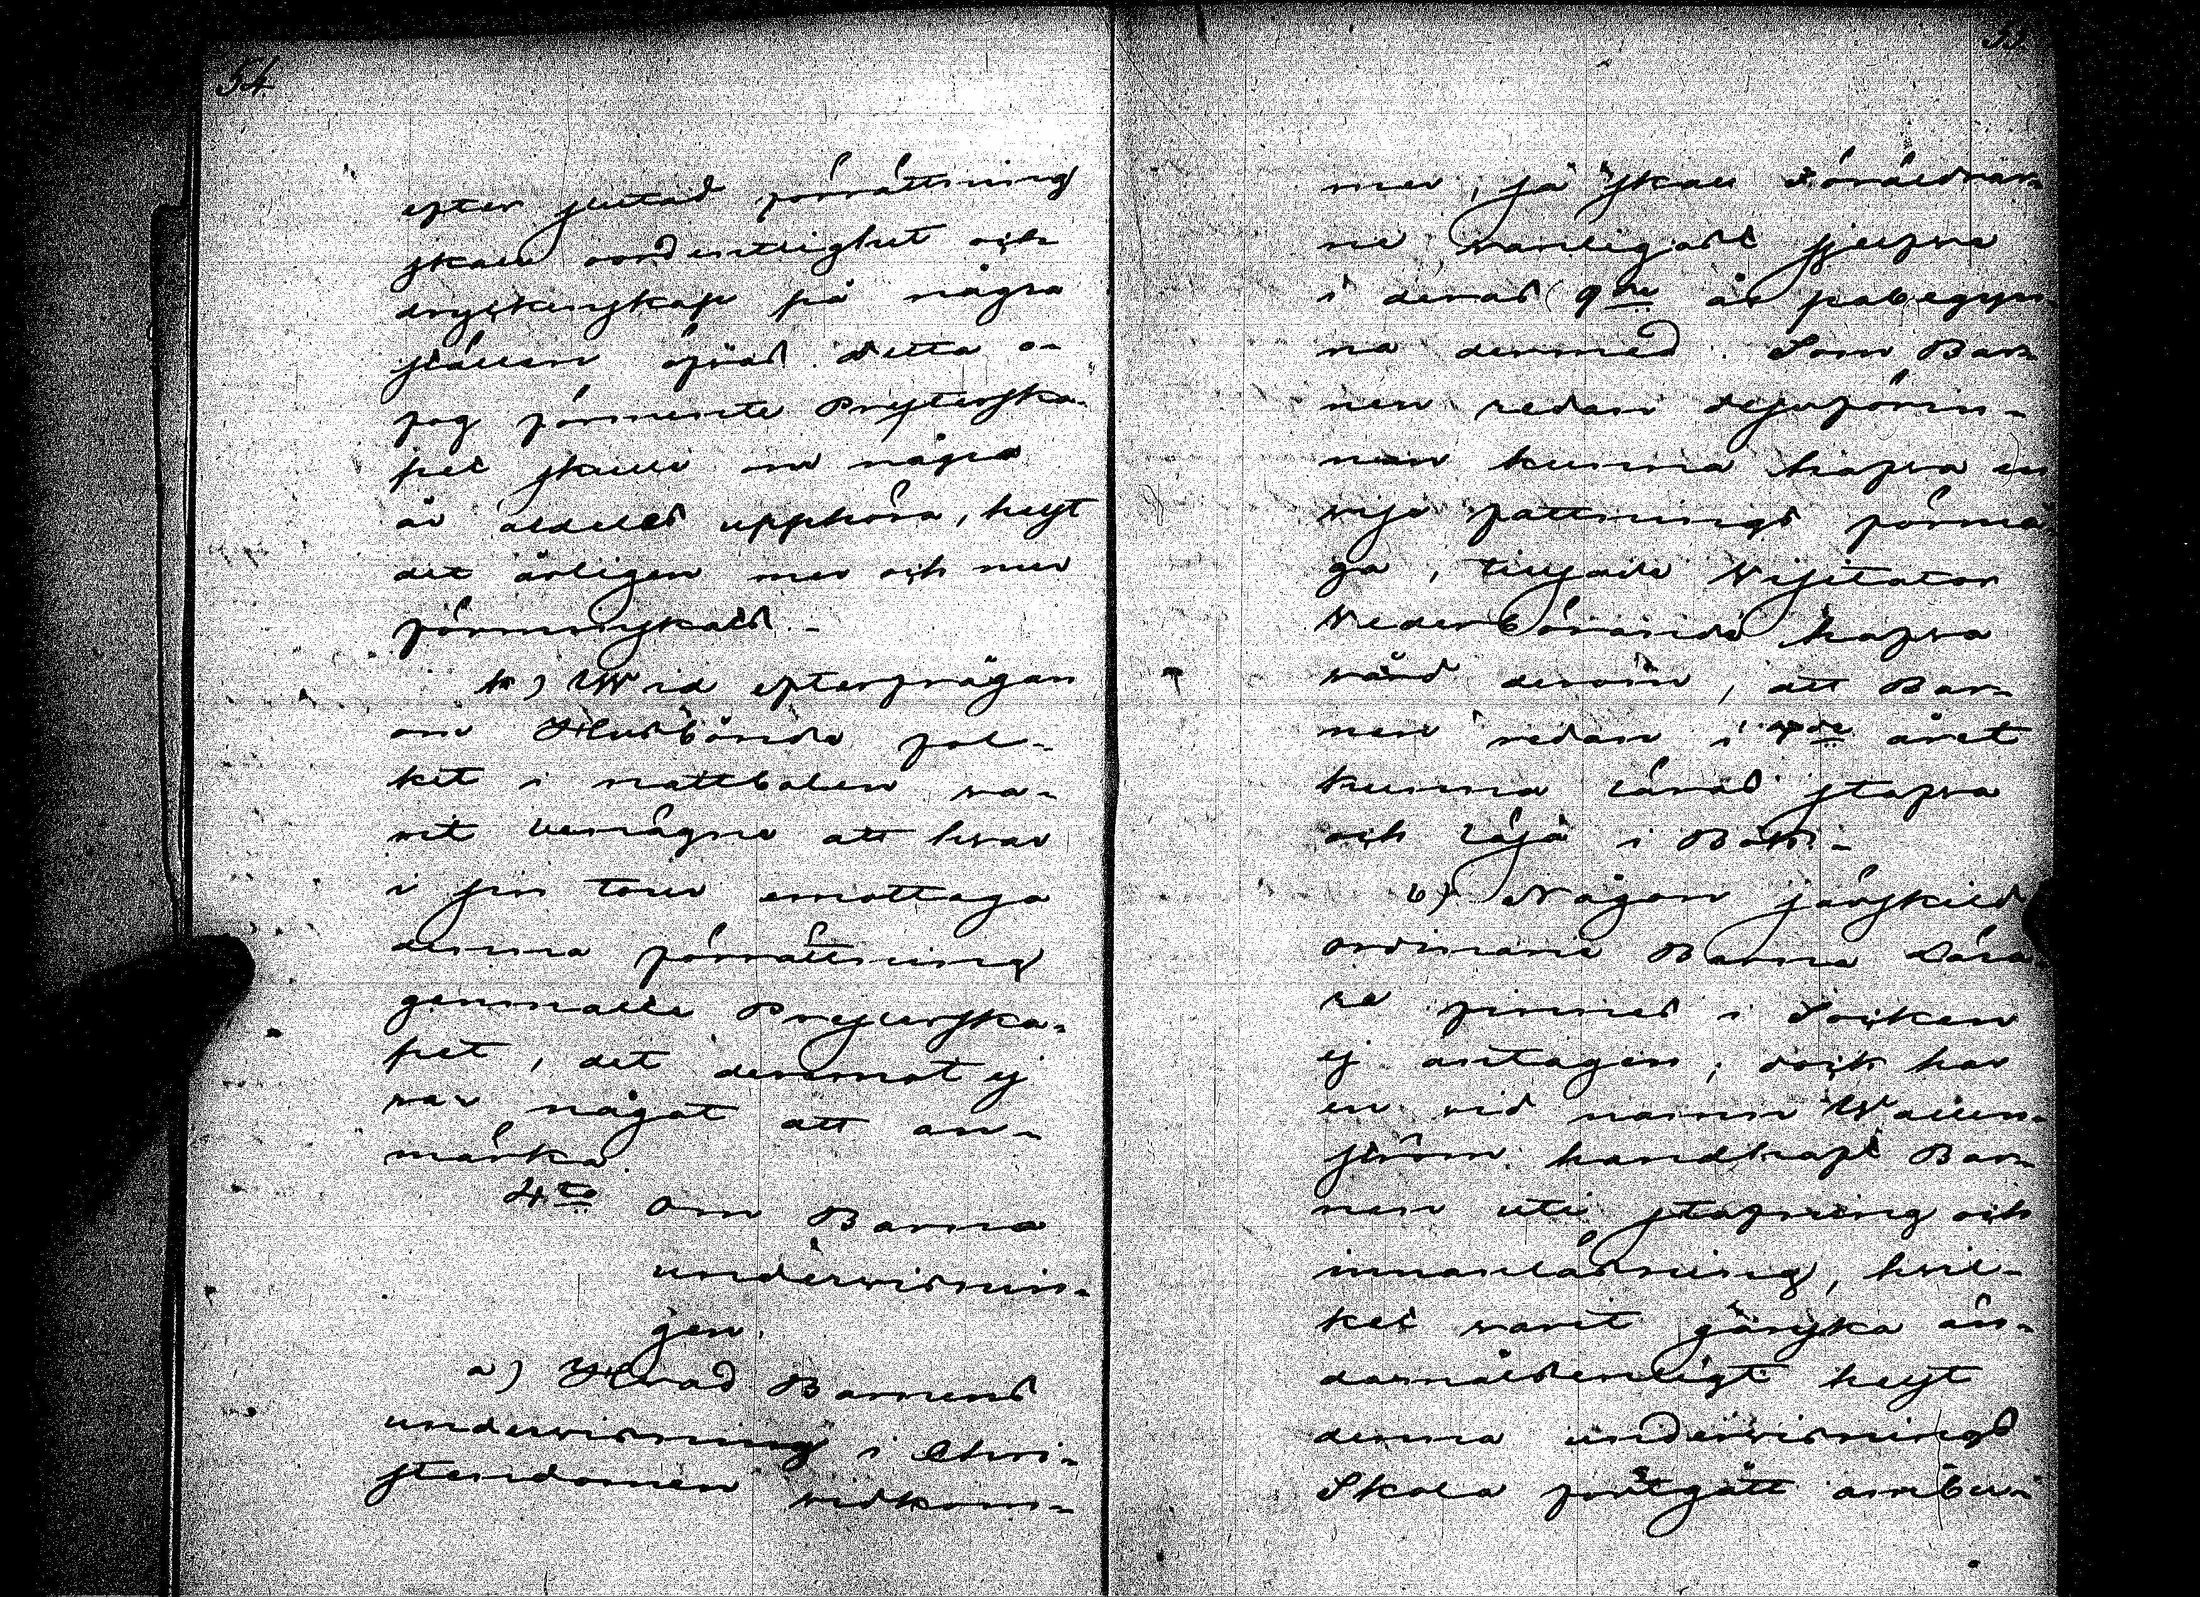 54.
efter slutad förrättning
skall oordentlighet och
dryckenskap på några
ställen öfvas. Detta o-
fog förmente Presterska-
pet skulle om några
år aldeles upphöra, helst
det årligen mer och mer
förminskads.-
h) Wid efterfrågan
om Husbönde fol-
ket i nattbolen wa-
rit benägne att hvar
i sin tour emottaga
denna förrättning
genmälte Presterska-
pet, det deremot ej
war något att an-
märka.
4to Om Barna
underwisnin-
gen.
a) Hvad Barnens
underwisning i Chri-
stendomen widkom-
55.
mer, så skall Föräldrar-
ne wanligast sjelfve
i deras 9de år påbegyn-
na dermed. Som Bar-
nen redan dessförin-
nan kunna hafva en
wiss fattnings förmå
ga, tillsade Visitator
Wederbörande hafva
wård derom, att Bar-
nen redan i året
kunna läras stafva
och läsa i Bok.-
b) Någon särskild
ordinarie Barna Lära
re finnes i Socken
ej antagen; dock har
en wid namn Wallen-
ström handhaft Bar-
nen uti stafning och
innanläsning, hvil-
ket warit ganska än-
damålsenligt helst
denna underwisnings
Skola fortgått ambu-